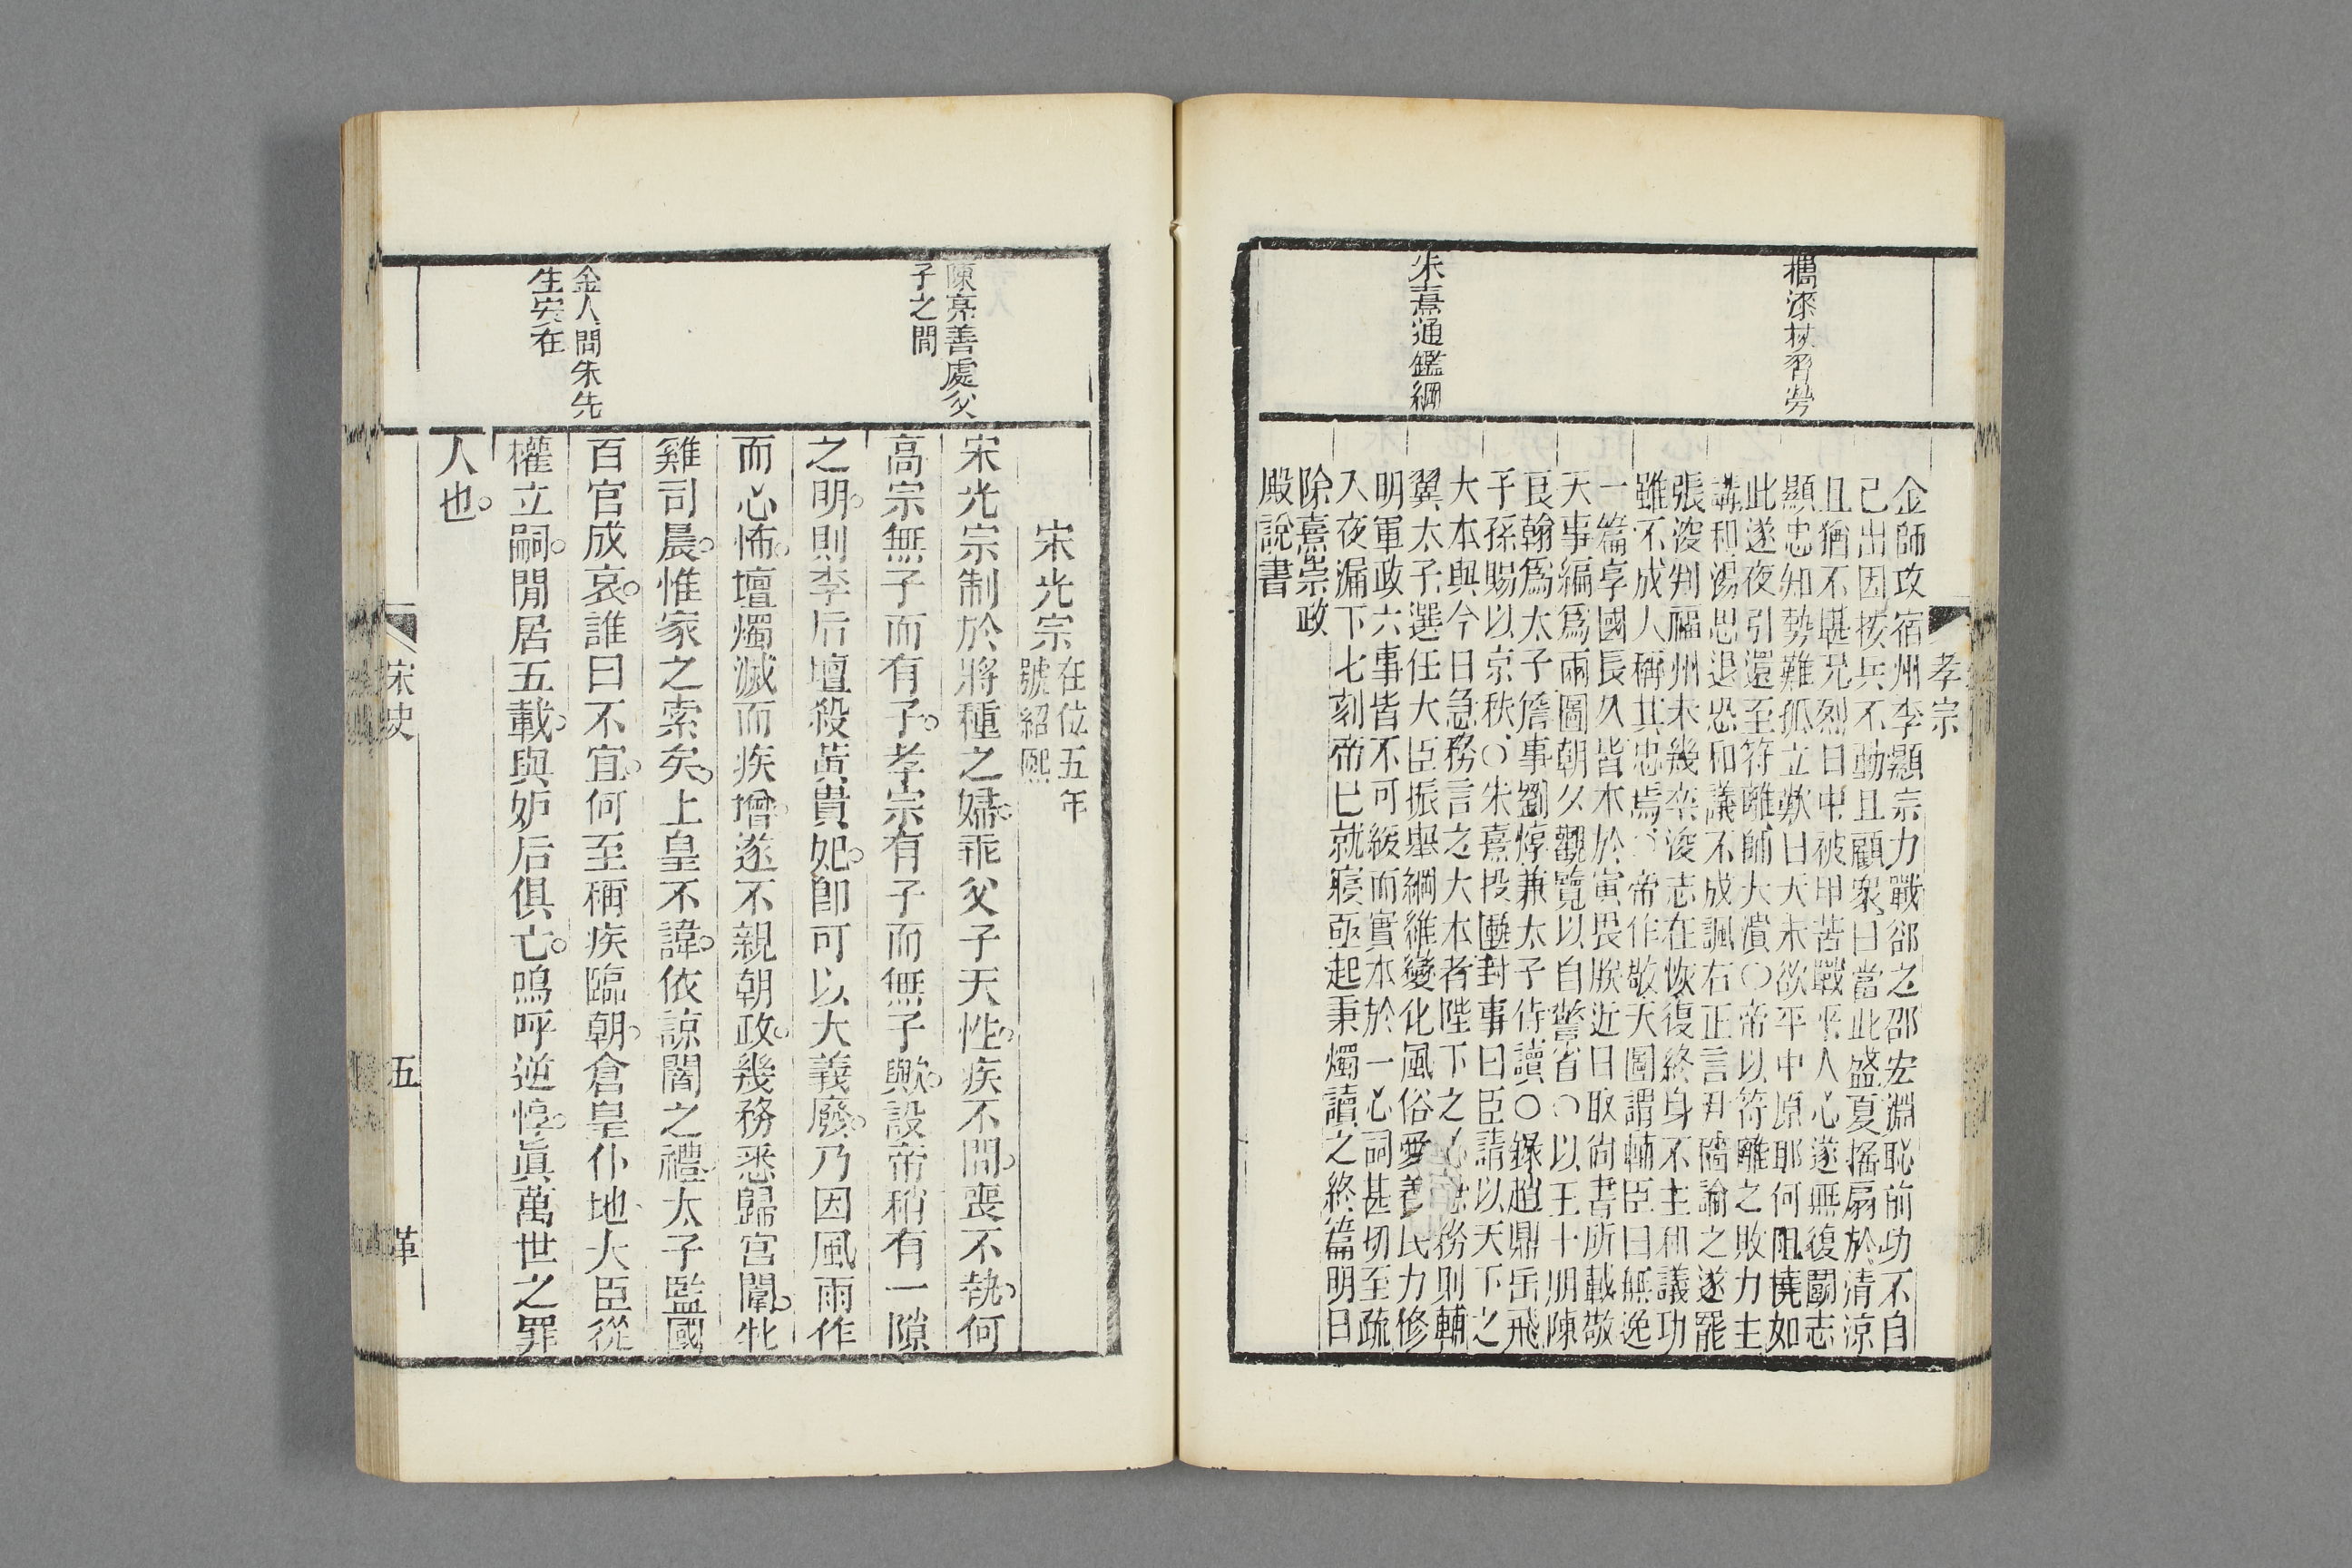 孝宗
攜漆杖習勞
朱熹通鑑綱
金師攻宿州李顯宗力戰郤之邵宏淵恥前功不自
己出因按兵不動且顧衆曰當此盛夏搖扇於清涼
且猶不堪况烈日中被甲苦戰乎人心遂無復鬬志
顯忠知勢難孤立歎曰天未欲平中原耶何阻撓如
此遂夜引還至符離師大潰〇帝以符離之敗力主
講和湯思退恐和議不成諷右正言尹穡論之遂罷
張浚判福州未幾卒浚志在恢復終身不主和議功
雖不成人稱其忠焉〇帝作敬天圖謂輔臣曰無逸
一篇享國長久皆本於寅畏朕近日取尚書所載敬
天事編爲兩圖朝夕觀覽以自警省〇以王十朋陳
良翰爲太子詹事劉惇兼太子侍讀〇錄趙鼎岳飛
子孫賜以京秩〇朱熹投匭封事曰臣請以天下之
大本與今日急務言之大本者陛下之心急務則輔
翼太子選任大臣振舉綱維變化風俗愛養民力修
明軍政六事皆不可緩而實本於一心詞甚切至疏
入夜漏下七刻帝巳就寢亟起秉燭讀之終篇明日
除熹崇政
殿說書
陳亮善處父
子之間
金人問朱先
生安在
宋光宗 在位五年
號紹熙
宋光宗制於將種之婦乖父子天性疾不問喪不執何
高宗無子而有子孝宗有子而無子歟設帝稍有一隙
之明則李后壇殺黃貴妃卽可以大義廢乃因風雨作
而心怖壇燭滅而疾增遂不親朝政幾務悉歸宮闈牝
雞司晨惟家之索矣上皇不諱依諒闇之禮太子監國
百官成哀誰曰不宜何至稱疾臨朝倉皇仆地大臣從
權立嗣閒居五載與妒后俱亡嗚呼逆惇眞萬世之罪
人也
宋史
五
革